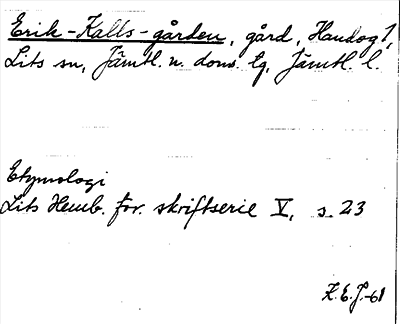 Erik-Kalls-gården, gård, Handog 1,
Lits sn, Jämtl. n. doms. tg, Jämtl. l.
Etymologi
Lits Hemb. för. skriftserie V, s. 23
K.E.J.-61